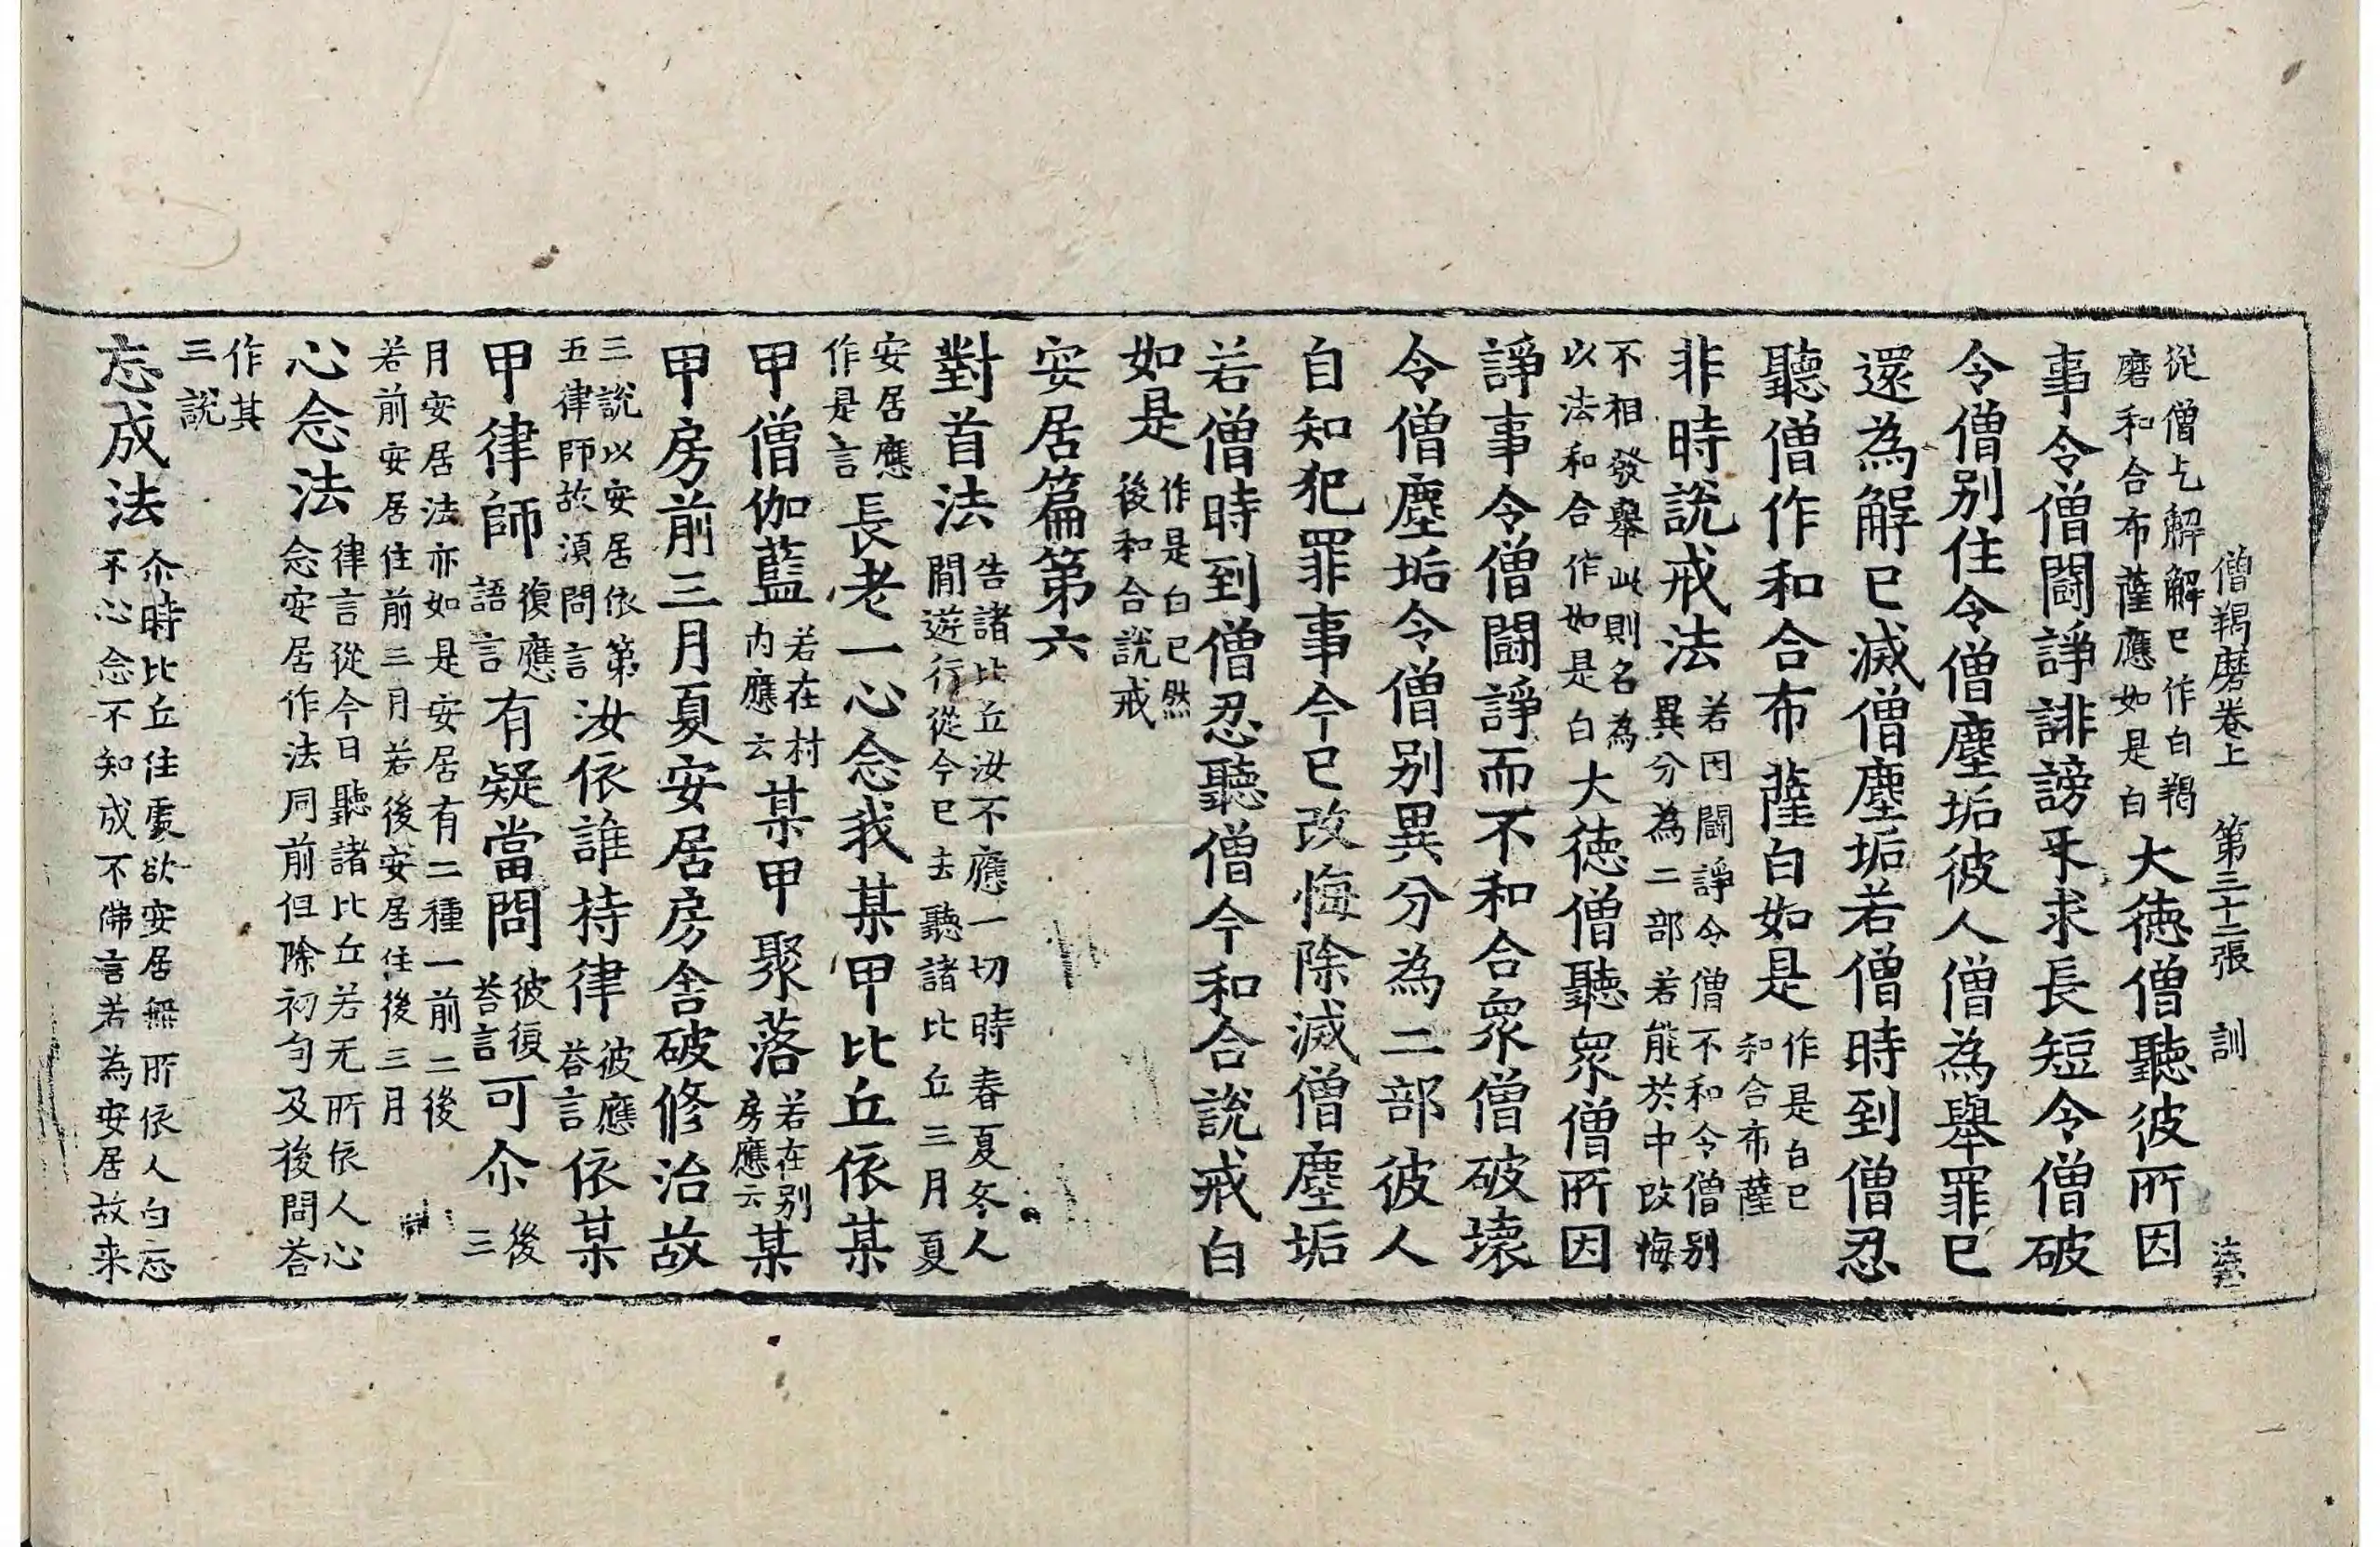 僧羯磨卷上　第三十二張　訓
從僧乞解解已作白羯
磨和合布薩應如是白
大德僧聽彼所因
事令僧鬪諍誹謗求長短令僧破
令僧別住令僧塵垢彼人僧為舉罪已
還為解已滅僧塵垢若僧時到僧忍
聽僧作和合布薩白如是
作是白已
和合布薩
非時說戒法
若因鬪諍令僧不和令僧別
異分為二部若能於中改悔
不相發舉此則名為
以法和合作如是白
大德僧聽眾僧所因
諍事令僧鬪諍而不和合眾僧破壞
令僧塵垢令僧別異分為二部彼人
自知犯罪事今已改悔除滅僧塵垢
若僧時到僧忍聽僧今和合說戒白
如是
作是白已然
後和合說戒
安居篇第六
對首法
告諸比丘汝不應一切時春夏冬人
間遊行從今已去聽諸比丘三月夏
安居應
作是言
長老一心念我某甲比丘依某
甲僧伽藍
若在村
內應云
某甲聚落
若在別
房應云
某
甲房前三月夏安居房舍破修治故
三說以安居依第
五律師故須問言
汝依誰持律
彼應
荅言
依某
甲律師
復應
語言
有疑當問
彼復
荅言
可尒
後
三
月安居法亦如是安居有二種一前二後
若前安居住前三月若後安居住後三月
心念法
律言從今日聽諸比丘若无所依人心
念安居作法同前但除初句及後問荅
作其
三說
忘成法
尒時比丘住處欲安居無所依人白忘
不心念不知成不佛言若為安居故来